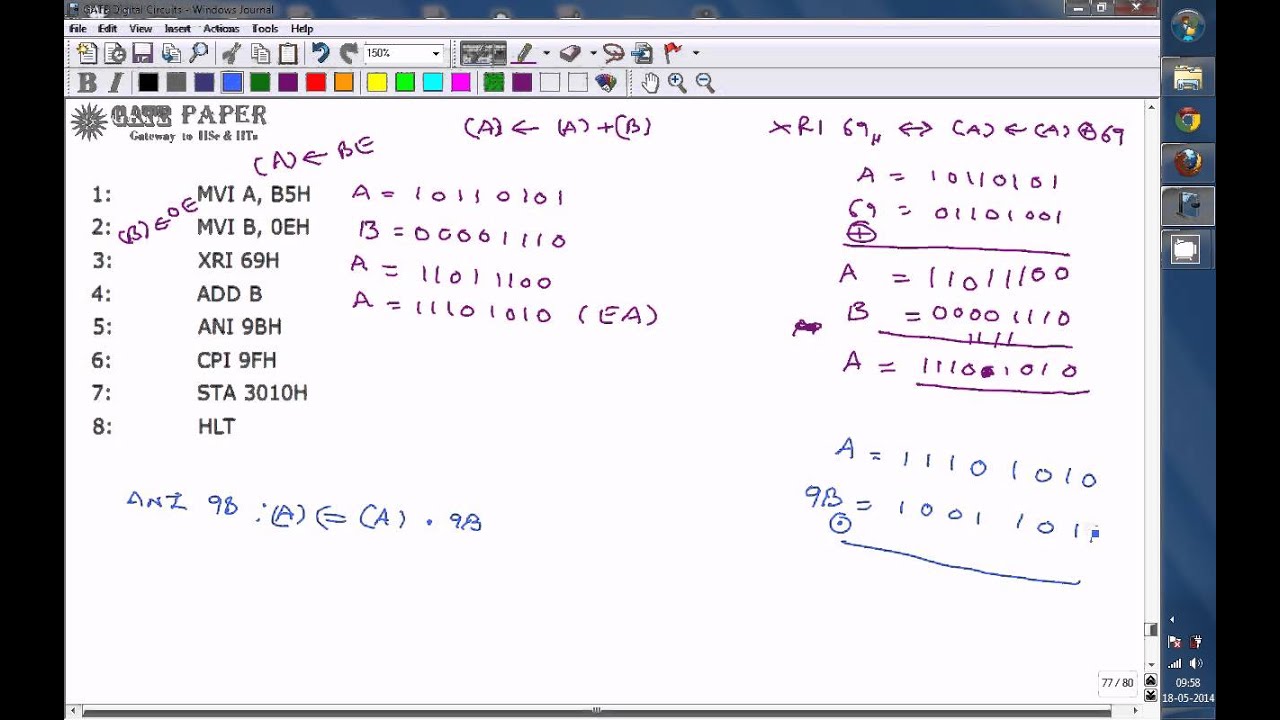 GATE Digital Circuits - Windows Journal
File Edit View Insert Actions Tools Help
150%
B I
GATE PAPER
Gateway to IISc & IITs
(A) ← (A) + (B)
XRI 69H ⇔ (A) ← (A) ⊕ 69
(A) ← BE
(B) ← 0E
1: MVI A, B5H A = 10110101
2: MVI B, 0EH B = 00001110
3: XRI 69H A = 11011100
4: ADD B A = 11101010 (EA)
5: ANI 9BH
6: CPI 9FH
7: STA 3010H
8: HLT
A = 10110101
69 = 01101001
⊕
A = 11011100
B = 00001110
1111
A = 11101010
A = 11101010
9B = 10011011
⊙
ANI 9B : (A) ⇐ (A) . 9B
77 / 80
09:58
18-05-2014